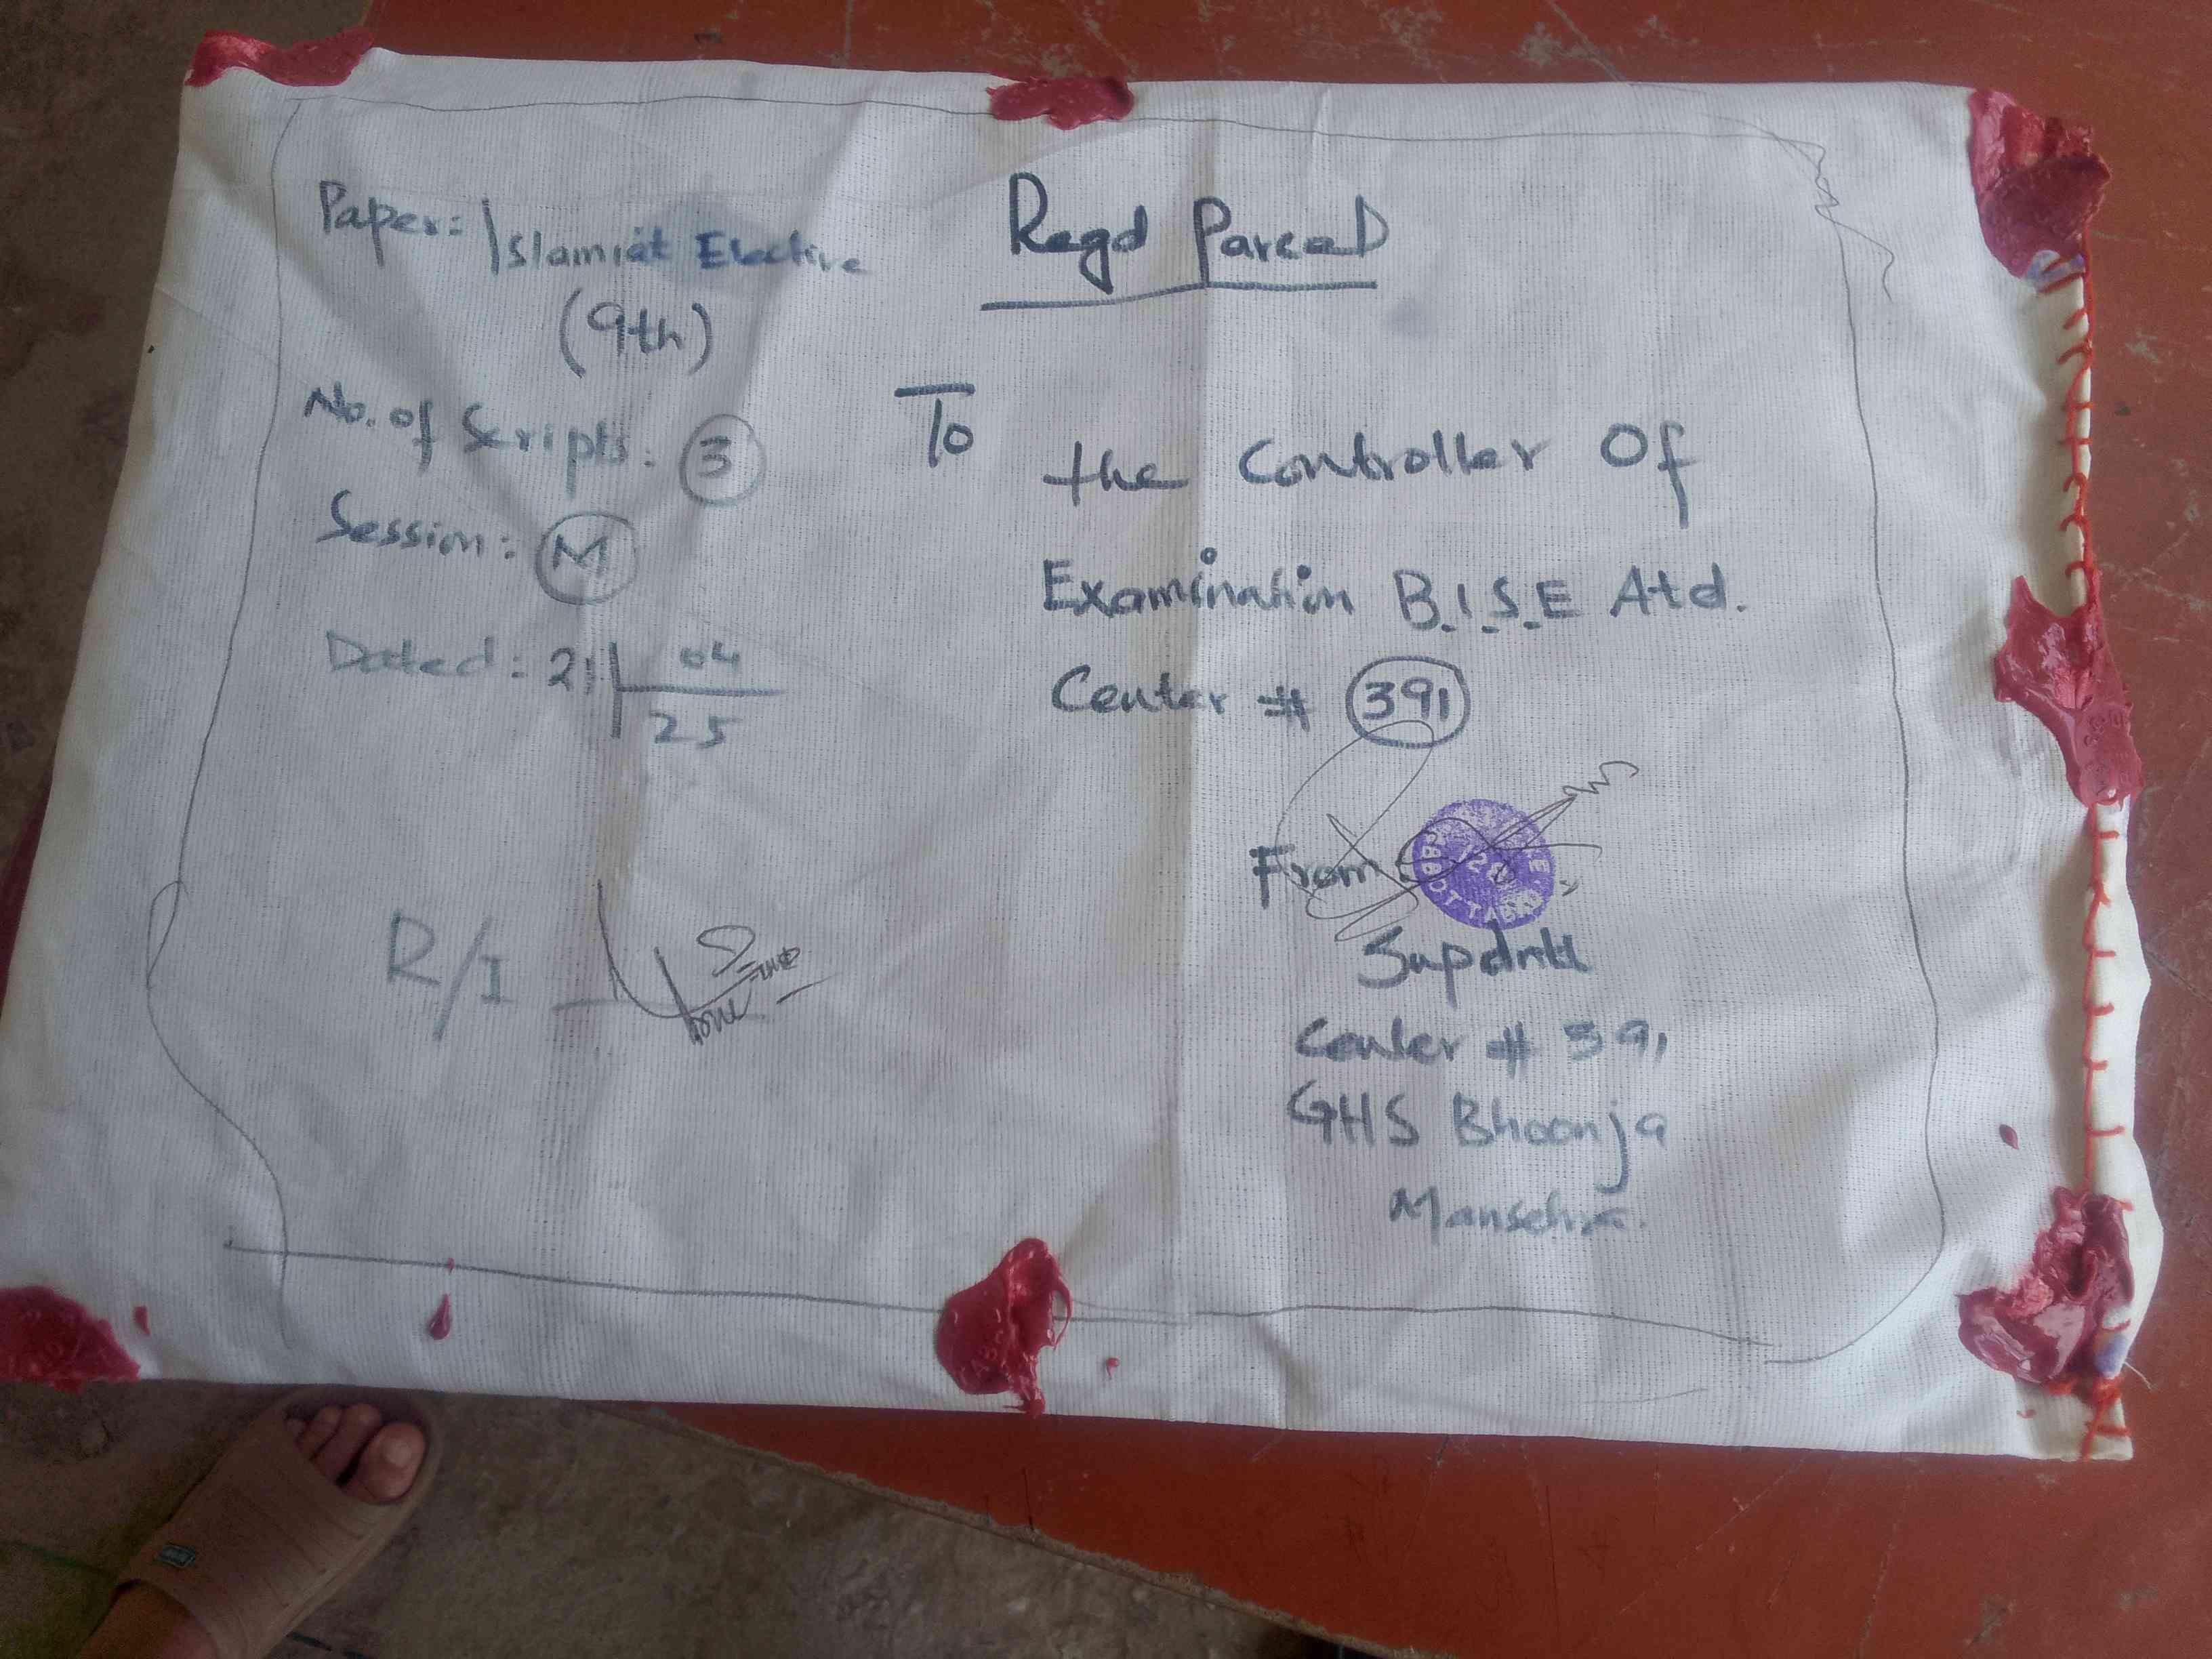 Regd Parcel
Paper: Islamiat Elective
(9th)
No. of Scripts: 3
Session: M
Dated: 21 04
25
R/I
To
the Controller Of
Examination B.I.S.E Atd.
Center # 391
From
Supdntt
Center # 391
GHS Bhoonja
Mansehra.